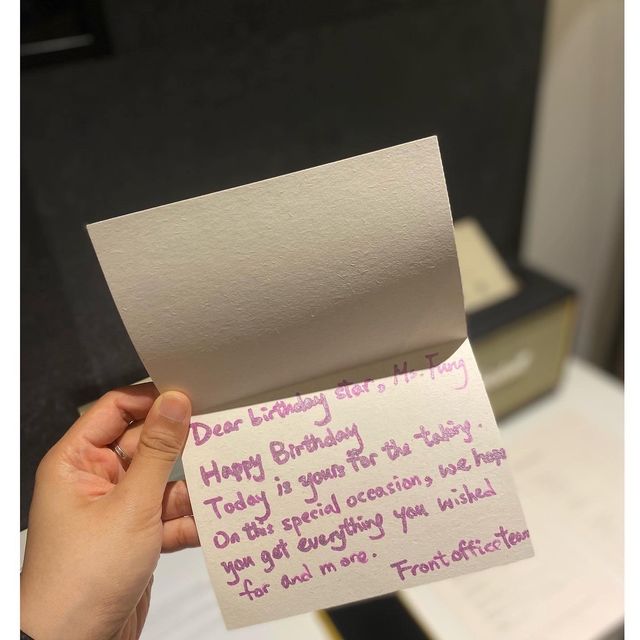 Dear birthday star, Ms. Fung
Happy Birthday
Today is yours for the taking.
On this special occasion, we hope
you get everything you wished
for and more.
Front office team